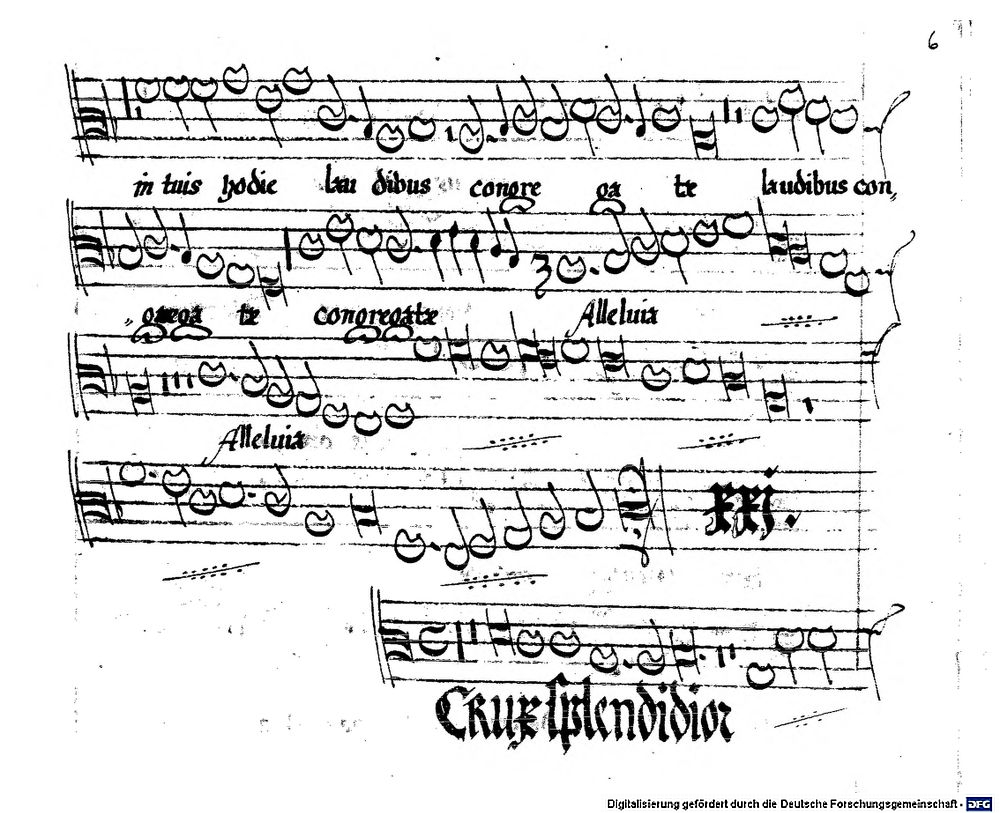 6
in tuis hodie lau dibus congre ga te laudibus con„
„grega te congregate Alleluia
Alleluia
xxj.
Crux splendidior
Digitalisierung gefördert durch die Deutsche Forschungsgemeinschaft - DFG